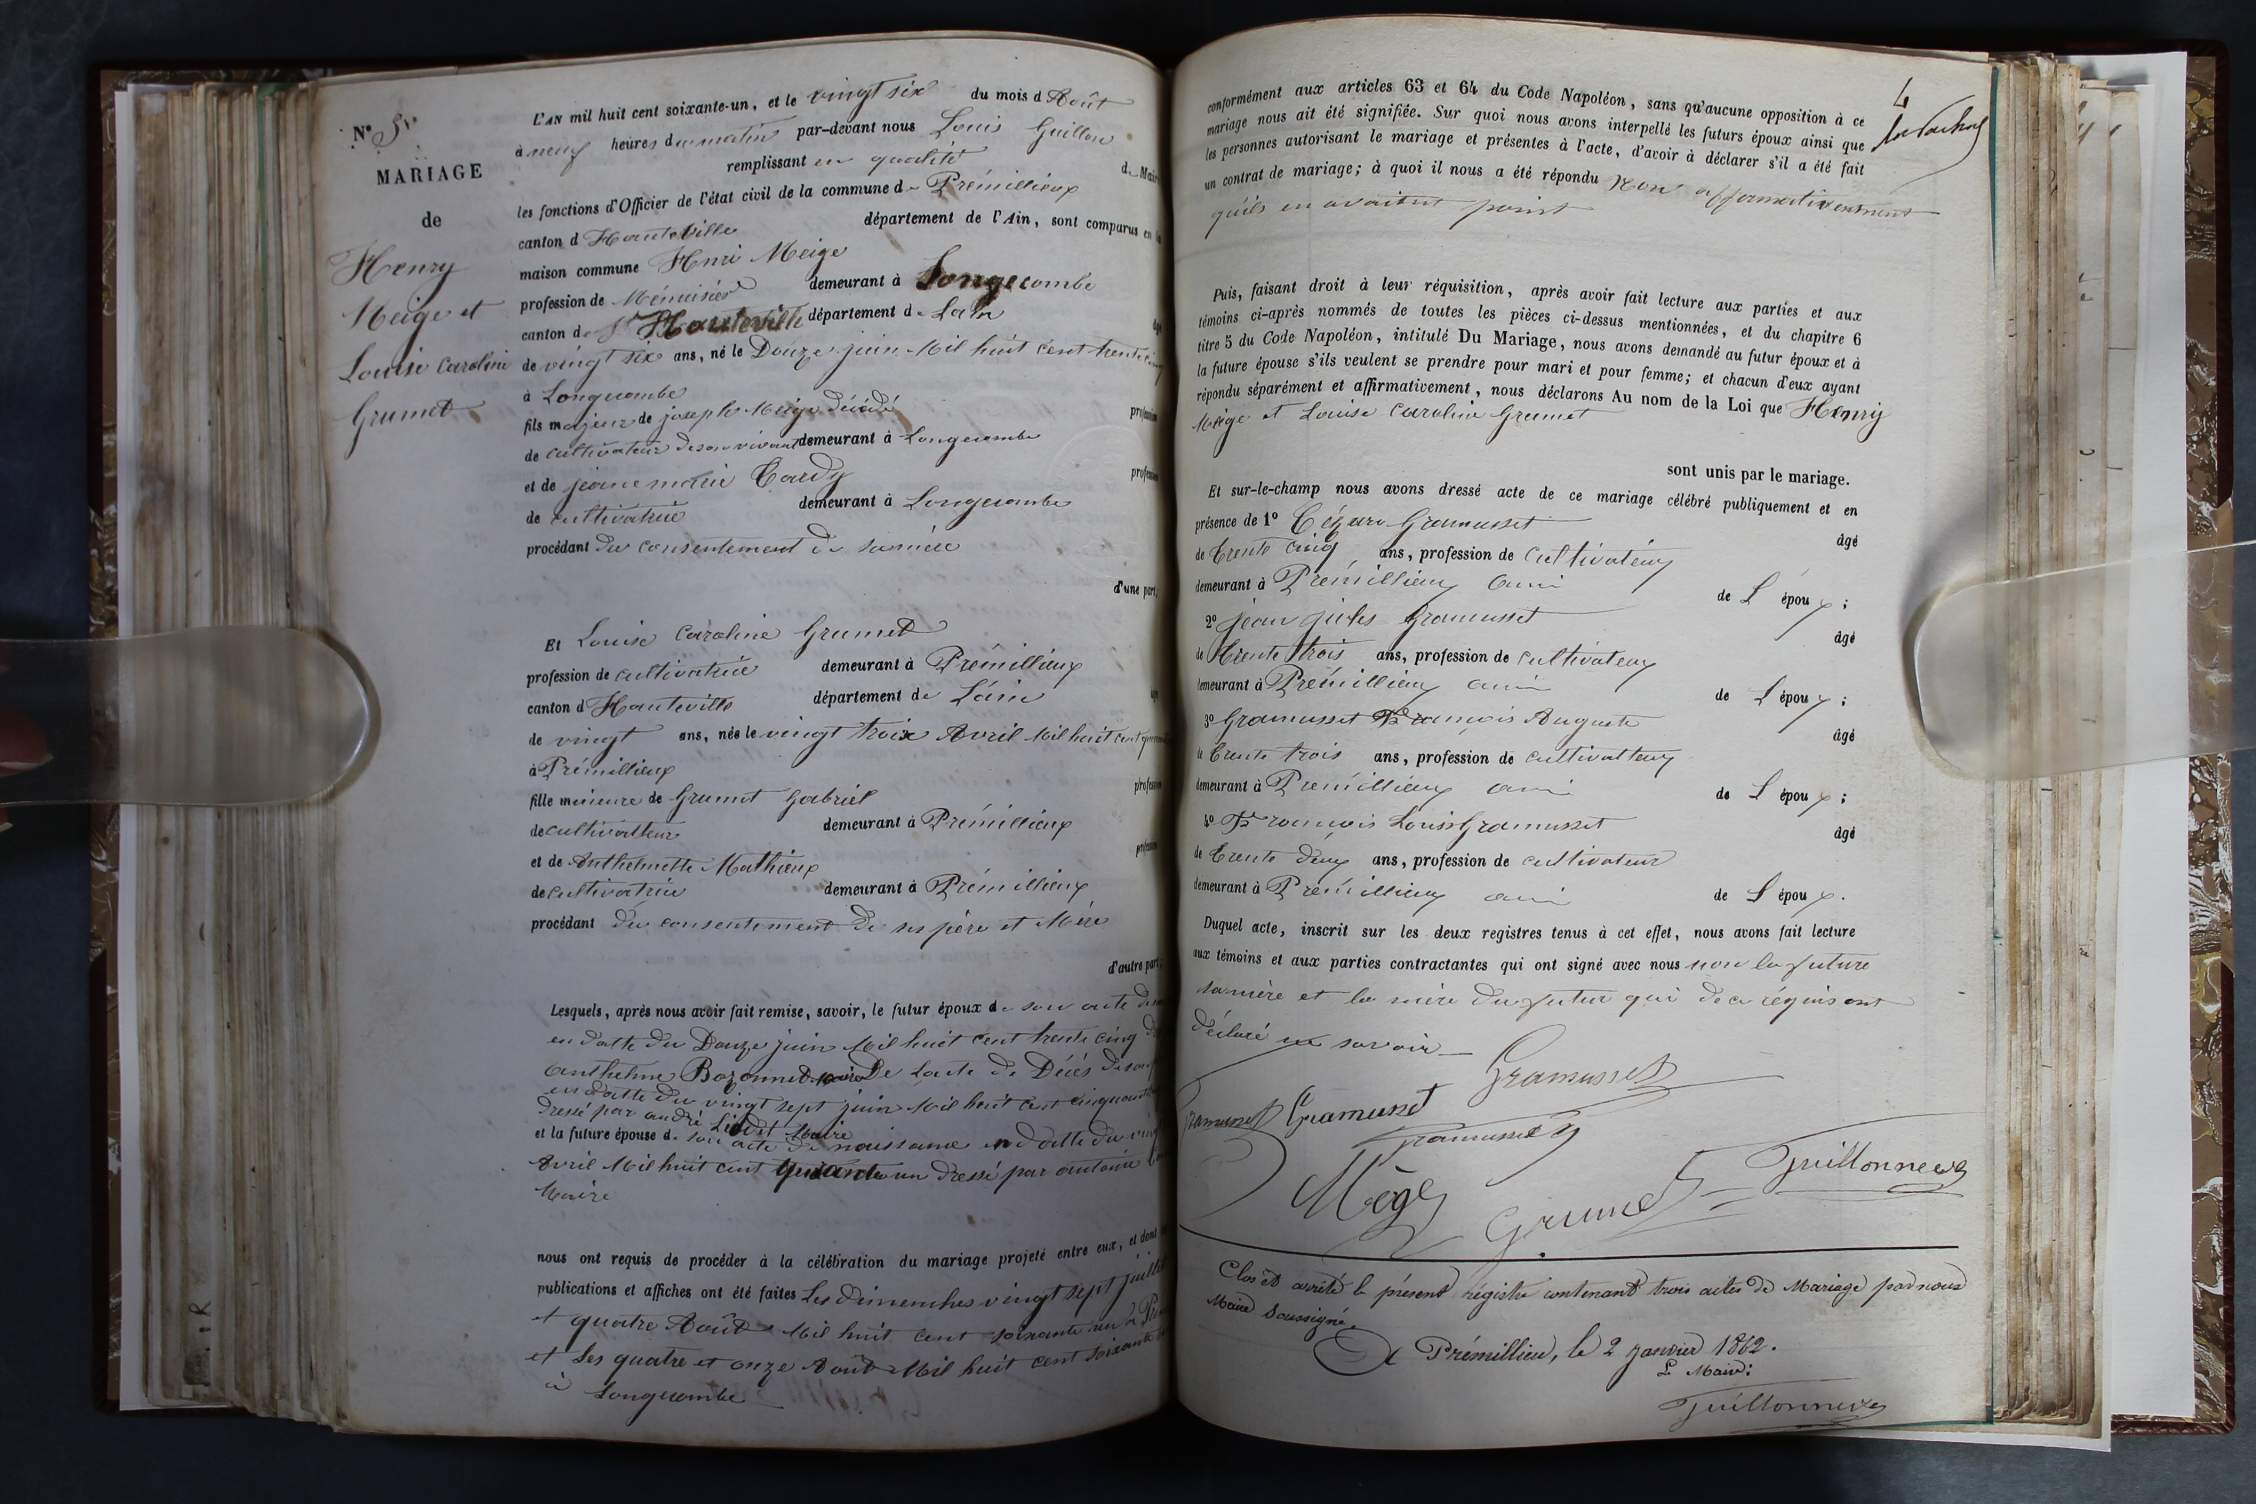 N° 3
MARIAGE
de
Henry
Meige et
Louise Caroline
Grumet
L'AN mil huit cent soixante-un, et le vingt six du mois d Août
à neuf heures du matin par-devant nous Louis Guillon
remplissant en qualité de Maire
les fonctions d'Officier de l'état civil de la commune de Prémillieux
canton d Hauteville département de l'Ain, sont comparus en la
maison commune Henri Meige
profession de Ménuisier demeurant à Longecombe
canton de Hauteville département de Lain âgé
de vingt six ans, né le Douze juin Mil huit cent trente cinq
à Longecombe
fils majeur de joseph Meige décédé profession
de cultivateur de son vivant demeurant à Longecombe
et de jeane marie Cardy profession
de cultivatrice demeurant à Longecombe
procédant du consentement de samère
d'une part,
Et Louise Caroline Grumet
profession de cultivatrice demeurant à Prémillieux
canton d Hauteville département de Lain âgé
de vingt ans, née le vingt troix Avril Mil huit cent
à Prémillieux
fille mineure de Grumet Gabriel profession
de cultivatteur demeurant à Prémillieux
et de Anthelmette Mathieux profession
de cultivatrice demeurant à Prémillieux
procédant du consentement de ses père et Mère
d'autre part;
Lesquels, après nous avoir fait remise, savoir, le futur époux de son acte de
en datte du Douze juin Mil huit cent trente cinq
Anthelme Bozonnet maire De lacte de Décès de son
en datte du vingt sept juin Mil huit cent cinquante
dressé par andré Liodet Maire
et la future épouse de son acte de naissance en datte du vingt
Avril Mil huit cent quarante un dressé par antoine
Maire
nous ont requis de procéder à la célébration du mariage projeté entre eux, et dont
publications et affiches ont été faites Les dimenches vingt sept juillet
et quatre Août Mil huit cent soixante un à
et Les quatre et onze Août Mil huit cent soixante
à Longecombe
4
conformément aux articles 63 et 64 du Code Napoléon, sans qu'aucune opposition à ce
mariage nous ait été signifiée. Sur quoi nous avons interpellé les futurs époux ainsi que
les personnes autorisant le mariage et présentes à l'acte, d'avoir à déclarer s'il a été fait
un contrat de mariage; à quoi il nous a été répondu Non affirmativement
qu'ils en avaitent point
Puis, faisant droit à leur réquisition, après avoir fait lecture aux parties et aux
témoins ci-après nommés de toutes les pièces ci-dessus mentionnées, et du chapitre 6
titre 5 du Code Napoléon, intitulé Du Mariage, nous avons demandé au futur époux et à
la future épouse s'ils veulent se prendre pour mari et pour femme; et chacun d'eux ayant
répondu séparément et affirmativement, nous déclarons Au nom de la Loi que Henry
Meige et Louise Caroline Grumet
sont unis par le mariage.
Et sur-le-champ nous avons dressé acte de ce mariage célébré publiquement et en
présence de 1° Cézare Gramusset âgé
de Trente cinq ans, profession de cultivateux
demeurant à Prémillieux ami de L époux;
2° jean jules Gramusset âgé
de Trente trois ans, profession de cultivateux
demeurant à Prémillieux ami de L époux;
3° Gramusset François Auguste âgé
de Trente trois ans, profession de cultivatteux
demeurant à Prémillieux ami de L époux;
4° François Louis Gramusset âgé
de Trente deux ans, profession de cultivateur
demeurant à Prémillieux ami de L époux.
Duquel acte, inscrit sur les deux registres tenus à cet effet, nous avons fait lecture
aux témoins et aux parties contractantes qui ont signé avec nous non la future
samère et la mère du futur qui de ce réquis ont
déclaré ne savoir
Gramusset
Gramusset Gramusset
Gramusset
Mège Grumet Guillonneux
Clos et arrêté le présent régistre contenant trois actes de Mariage par nous
Maire Soussigné.
A Prémillieu, le 2 janvier 1862.
Le Maire:
Guillonneux